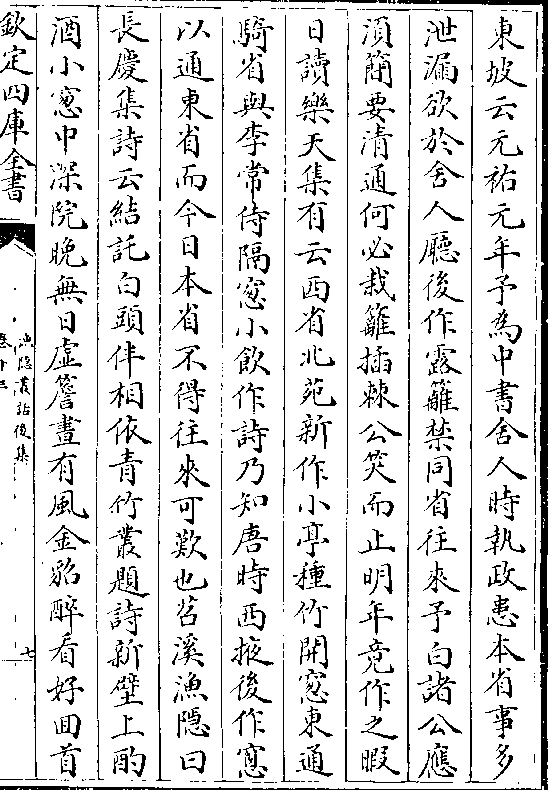 東坡云元祐元年予為中書舍人時執政患本省事多
泄漏欲於舍人廳後作露籬禁同省往來予白諸公應
須簡要清通何必栽籬插棘公笑而止明年竟作之暇
日讀樂天集有云西省北苑新作小亭種竹開窻東通
騎省與李常侍隔窻小飲作詩乃知唐時西掖後作窻
以通東省而今日本省不得往來可歎也苕溪漁隱曰
長慶集詩云結託白頭伴相依青竹叢題詩新壁上酌
酒小窻中深院晚無日虛簷晝有風金貂醉看好囬首
欽定四庫全書
漁隱叢話後集
七